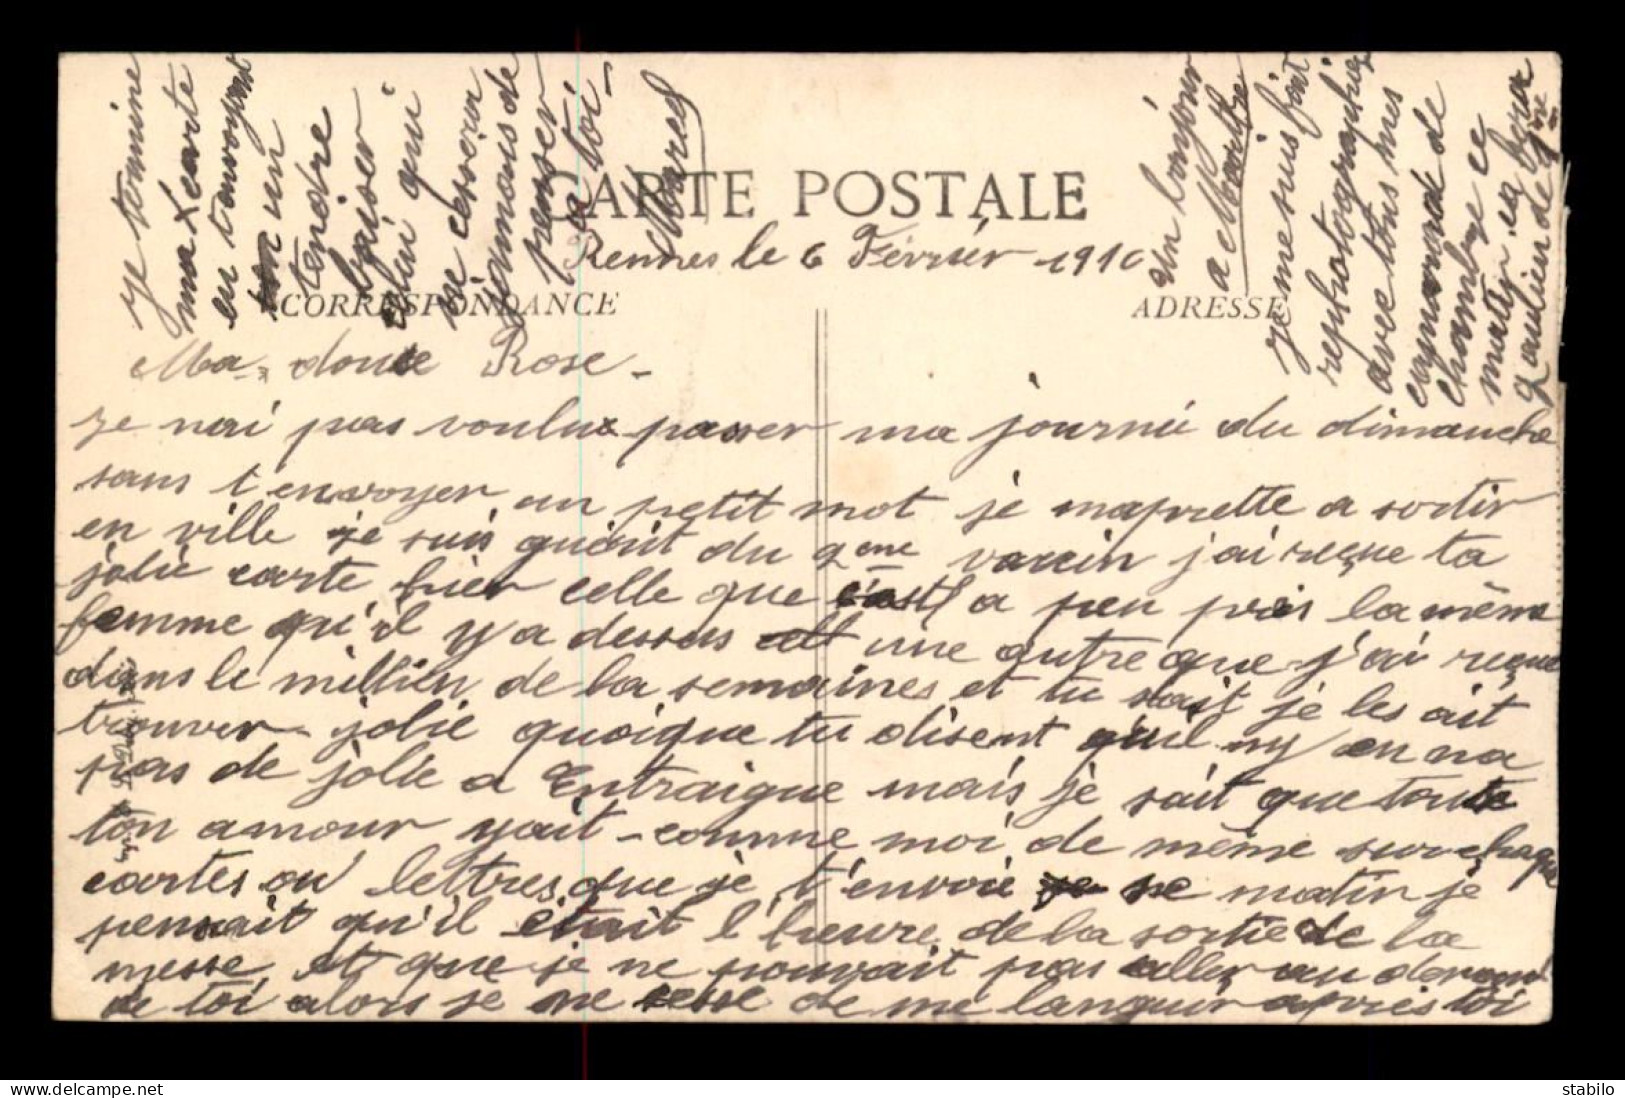 CARTE POSTALE
Rennes le 6 Février 1910
CORRESPONDANCE
ADRESSE
Ma douce Rose.
Je nai pas voulu passer ma journé du dimanche
sans t envoyer un petit mot je maprette a sortir
en ville je suis quérit du 2eme vaccin j'ai reçue ta
jolie carte hier celle que c'est a peu près la même
femme qu'il y a dessus une autre que j'ai reçue
dans le millieu de la semaines et tu sait je les ait
trouver jolie quoique tu disent qu'il ny en na
pas de jolie a Entraigue mais je sait que toute
ton amour yait - comme moi de même sur chaque
cartes ou lettres que je t'envoie se matin je
pensait qu'il était l'heure de la sortie de la
messe et que je ne pouvait pas aller au devant
de toi alors je ne cesse de me languir après toi
Je termine
ma carte
en tenvoyant
un
tendre
baiser
celui qui
ne cessera
jamais de
penser
a toi -
Marcel
Un bonjour
a Marthe
Je me suis fait
rephotographiez
avec tous mes
camarade de
chambre ce
matin sa fera
2 au lieu de que